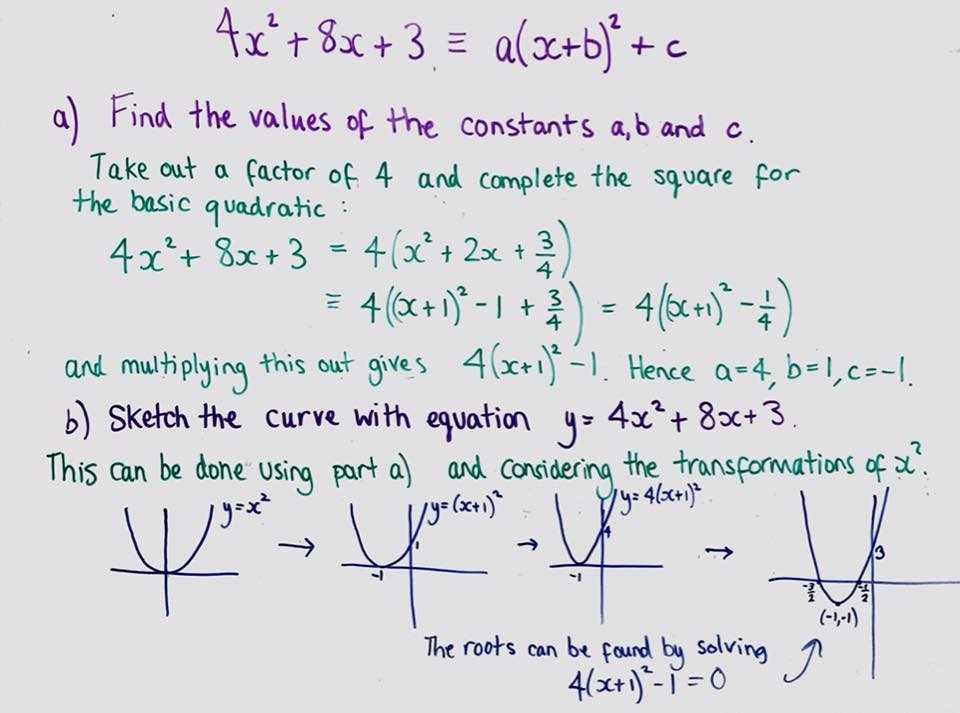 4x² + 8x + 3 ≡ a(x+b)² + c
a) Find the values of the constants a, b and c.
Take out a factor of 4 and complete the square for
the basic quadratic :
4x² + 8x + 3 = 4(x² + 2x + 3/4)
≡ 4((x+1)² - 1 + 3/4) = 4((x+1)² - 1/4)
and multiplying this out gives 4(x+1)² - 1. Hence a=4, b=1, c=-1.
b) Sketch the curve with equation y = 4x² + 8x + 3.
This can be done using part a) and considering the transformations of x².
y=x² → y=(x+1)² → y=4(x+1)² →
1 4 3
-1 -1 -3/2 -1/2
(-1,-1)
The roots can be found by solving
4(x+1)² - 1 = 0